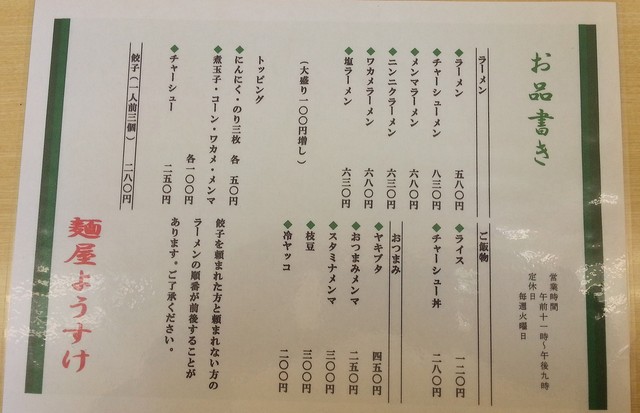 お品書き
営業時間
午前十一時〜午後九時
定休日
毎週火曜日
ラーメン
◆ラーメン 五八〇円
◆チャーシューメン 八三〇円
◆メンマラーメン 六八〇円
◆ニンニクラーメン 六三〇円
◆ワカメラーメン 六八〇円
◆塩ラーメン 六三〇円
（大盛り一〇〇円増し）
トッピング
◆にんにく・のり三枚 各 五〇円
◆煮玉子・コーン・ワカメ・メンマ
各一〇〇円
◆チャーシュー 二五〇円
餃子（一人前三個） 二八〇円
ご飯物
◆ライス 一二〇円
◆チャーシュー丼 二八〇円
おつまみ
◆ヤキブタ 四五〇円
◆おつまみメンマ 二五〇円
◆スタミナメンマ 三〇〇円
◆枝豆 三〇〇円
◆冷ヤッコ 二〇〇円
餃子を頼まれた方と頼まれない方の
ラーメンの順番が前後することが
あります。ご了承ください。
麺屋ようすけ